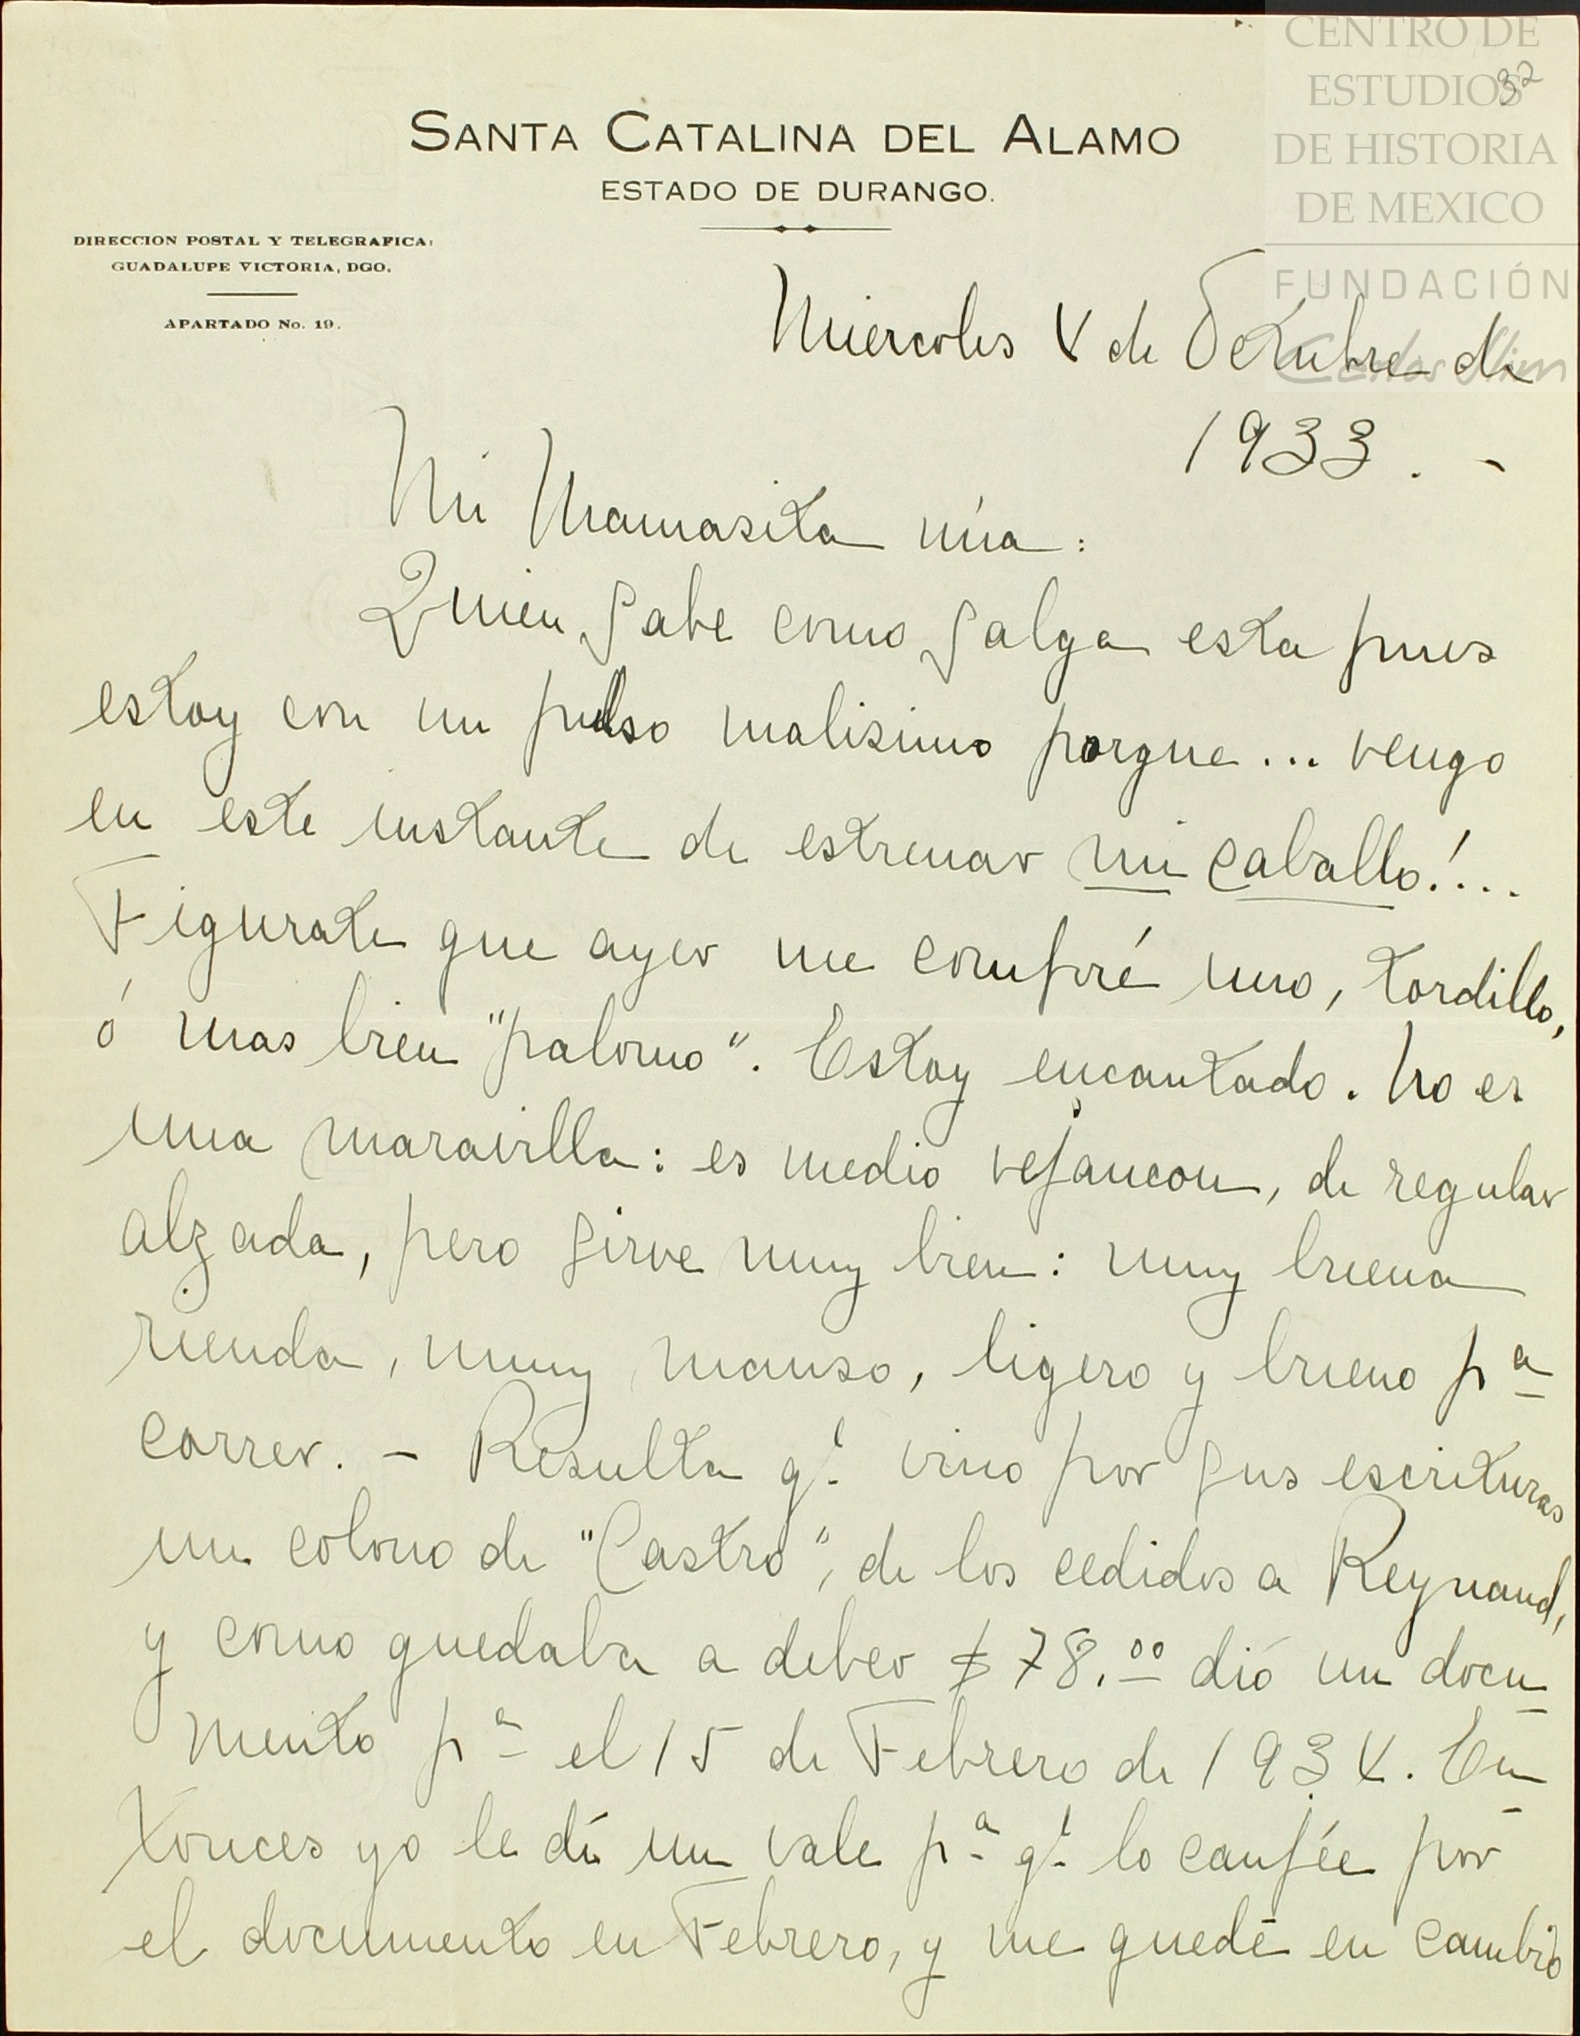 CENTRO DE
ESTUDIOS
DE HISTORIA
DE MEXICO
FUNDACIÓN
Carlos Slim
32
SANTA CATALINA DEL ALAMO
ESTADO DE DURANGO.
DIRECCION POSTAL Y TELEGRAFICA:
GUADALUPE VICTORIA, DGO.
APARTADO No. 19.
Miercoles 4 de Octubre de
1933. -
Mi Mamasita mia:
Quien sabe como salga esta pues
estoy con un pulso malisimo porque... vengo
en este instante de estrenar mi caballo!...
Figurate que ayer me compré uno, tordillo,
ó mas bien "palomo". Estoy encantado. No es
una maravilla: es medio vejancon, de regular
alzada, pero sirve muy bien: muy buena
rienda, muy manso, ligero y bueno pª
correr. - Resulta q' vino por sus escrituras
un colono de "Castro", de los cedidos a Reynaud,
y como quedaba a deber $78.00 dió un docu-
mento pª el 15 de Febrero de 1934. En-
tonces yo le dí un vale pª q' lo canjée por
el documento en Febrero, y me quedé en cambio